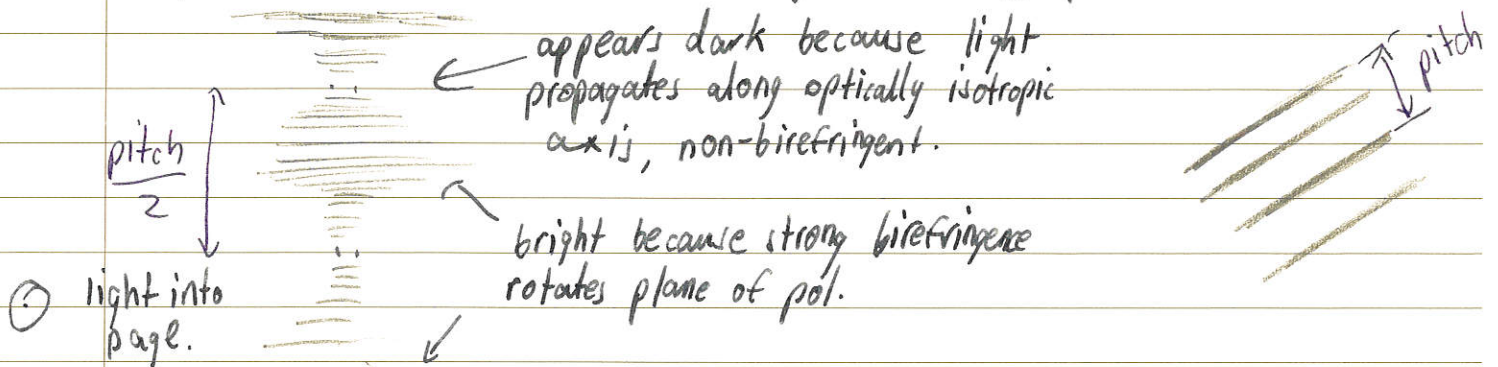 appears dark because light
propagates along optically isotropic
axis, non-birefringent.
pitch
pitch
2
bright because strong birefringence
rotates plane of pol.
light into
page.